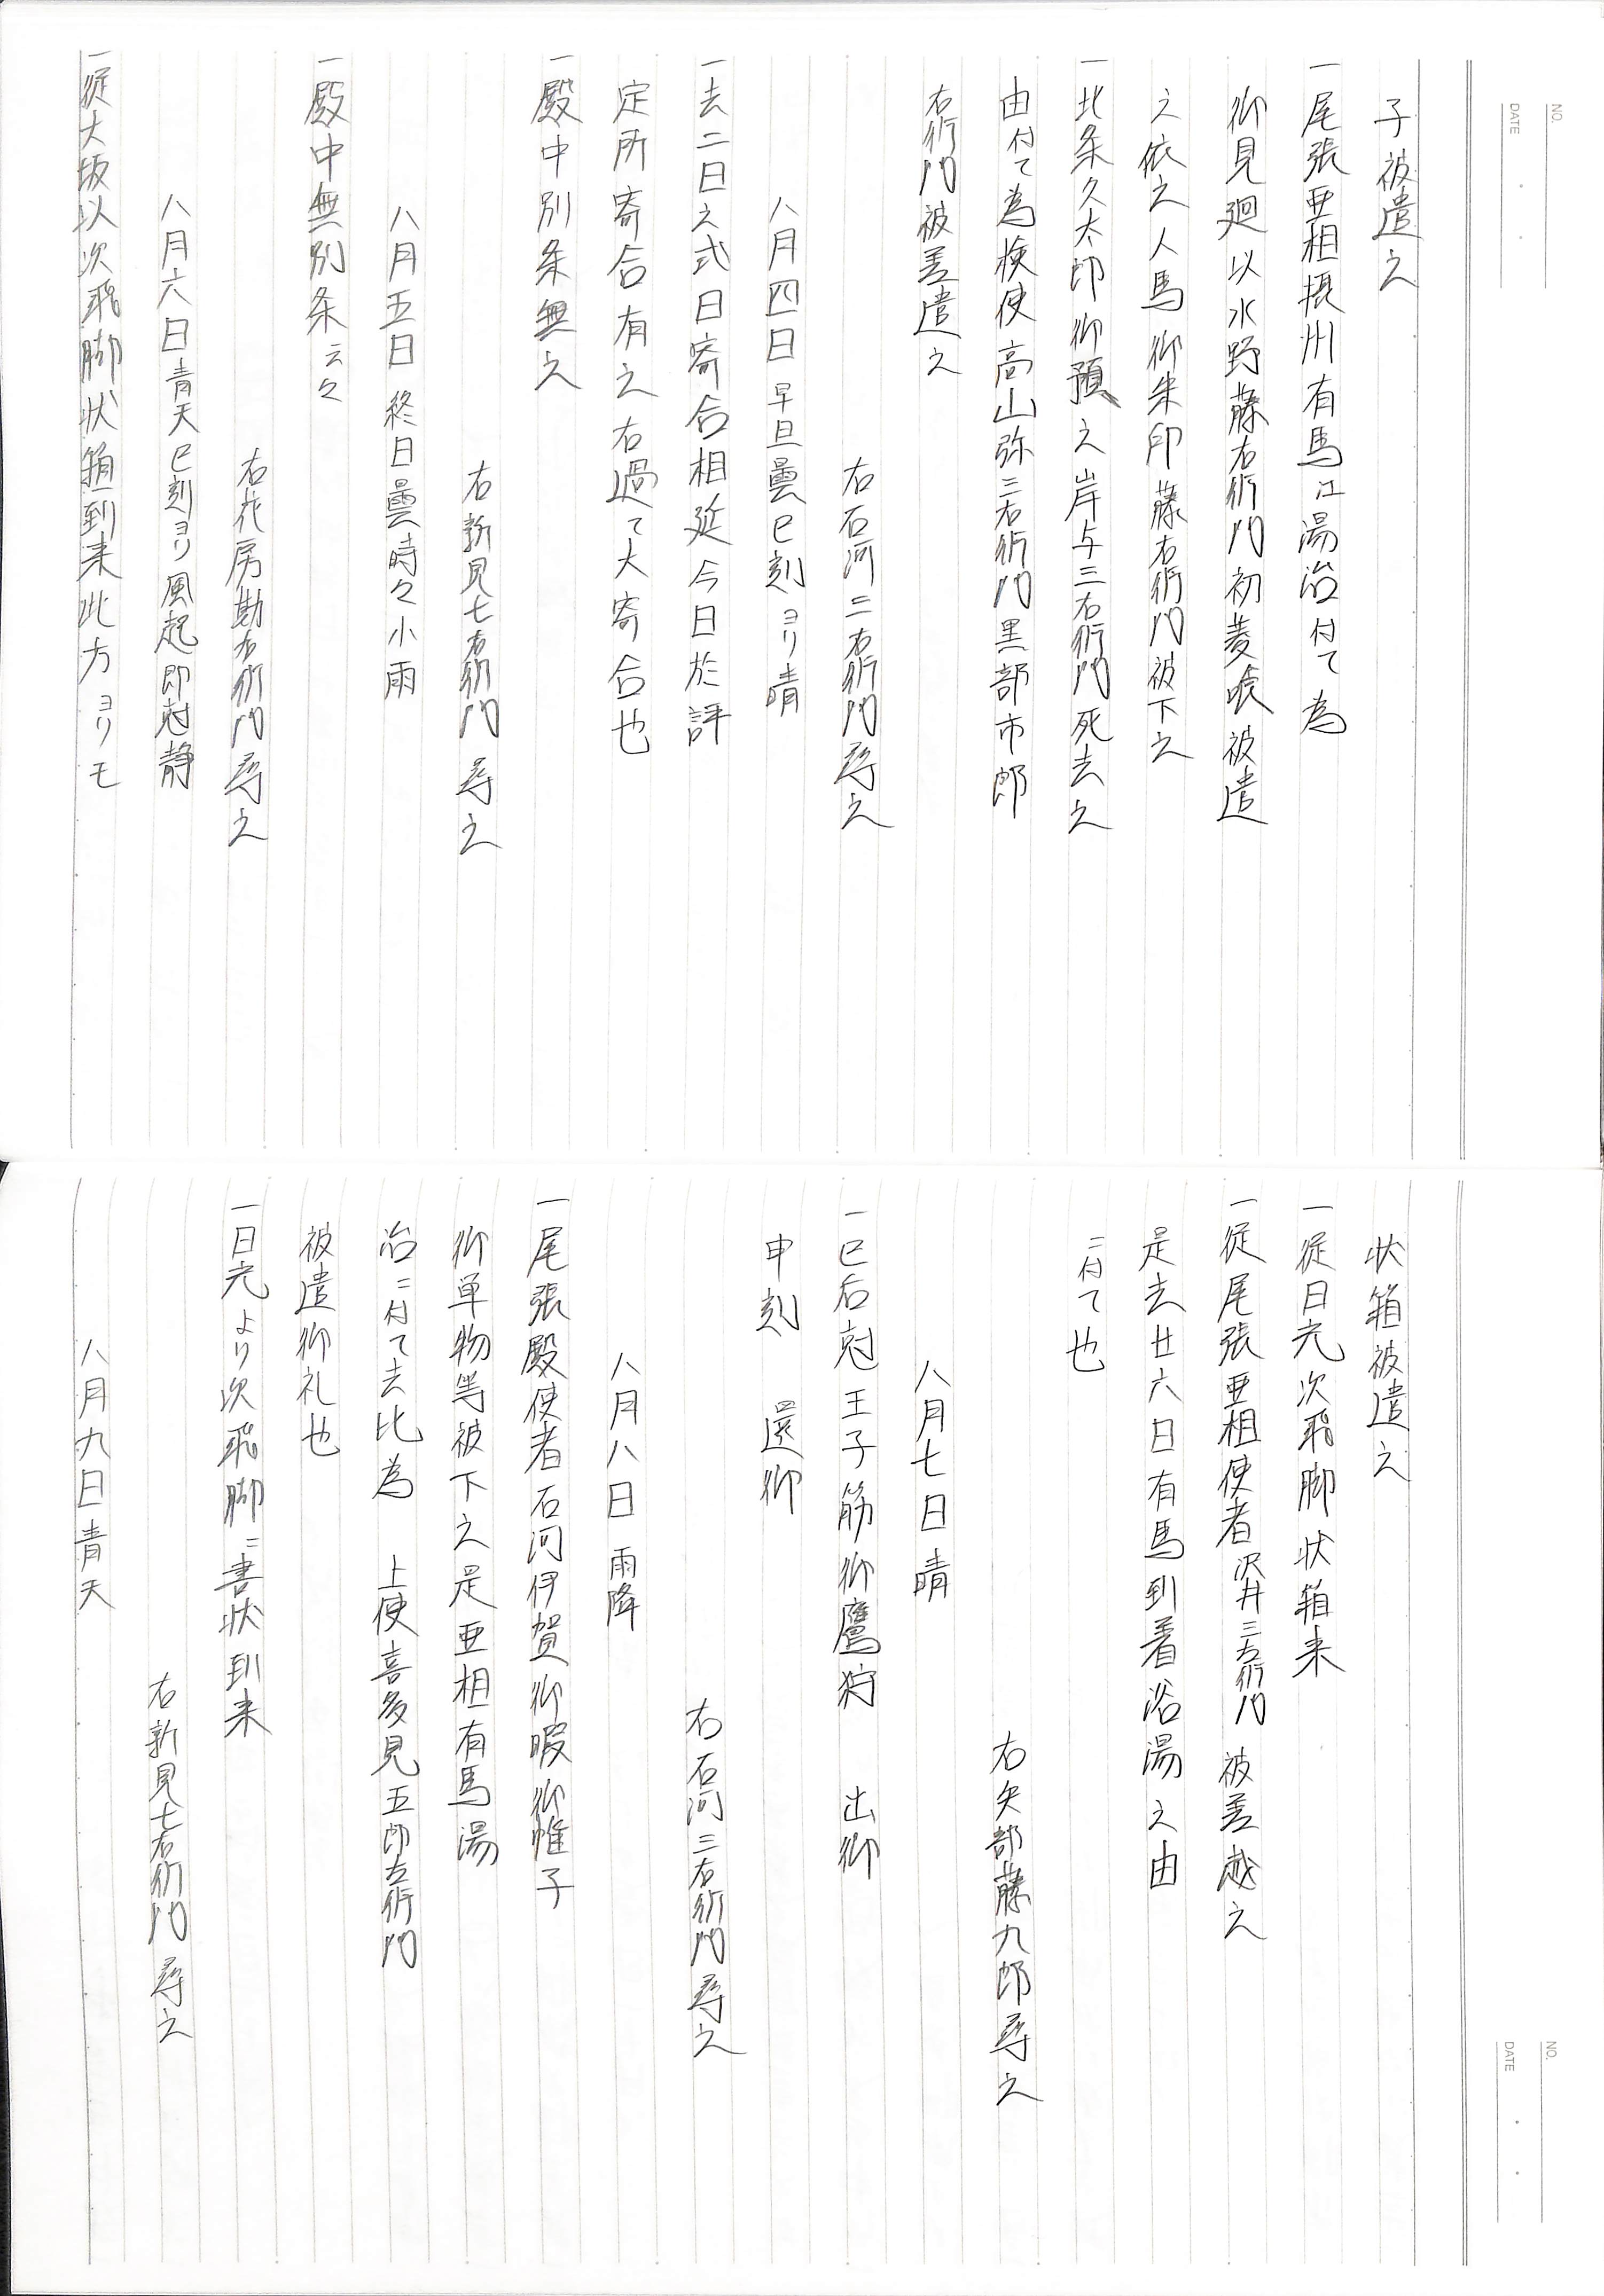 NO.
DATE
子被遣之
一尾張亜相摂州有馬江湯治付て為
御見廻以水野藤右衛門初菱喰被遣
之依之人馬御朱印藤右衛門被下之
一北条久太郎御預之岸与三右衛門死去之
由付て為検使高山弥三右衛門黒部市郎
右衛門被差遣之
右石河三右衛門尋之
八月四日早旦曇巳刻ヨリ晴
一去二日之式日寄合相延今日於評
定所寄合有之右過て大寄合也
一殿中別条無之
右新見七右衛門尋之
八月五日終日曇時々小雨
一殿中無別条云々
右花房勘右衛門尋之
八月六日青天巳刻ヨリ風起即尅静
一従大坂以次飛脚状箱到来此方ヨリモ
NO.
DATE
状箱被遣之
一従日光次飛脚状箱来
一従尾張亜相使者沢井三右衛門被差越之
是去廿六日有馬到着浴湯之由
ニ付て也
右矢部藤九郎尋之
八月七日晴
一巳后尅王子筋御鷹狩 出御
申刻 還御
右石河三右衛門尋之
八月八日雨降
一尾張殿使者石河伊賀御暇御帷子
御単物等被下之是亜相有馬湯
治ニ付て去比為 上使喜多見五郎左衛門
被遣御礼也
一日光より次飛脚ニ書状到来
右新見七右衛門尋之
八月九日青天